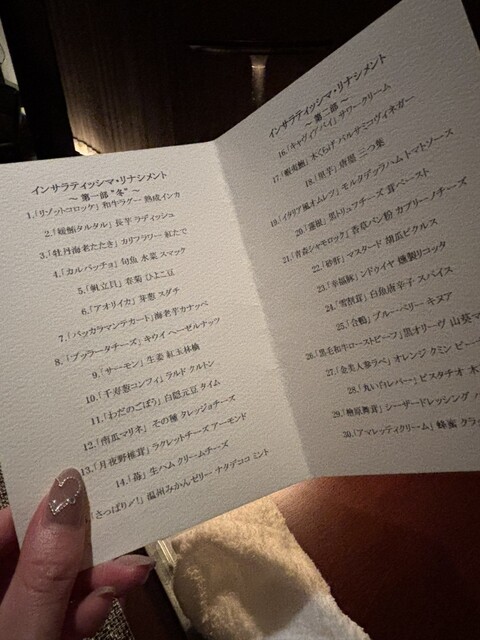 インサラティッシマ・リナシメント
～ 第一部 "冬" ～
1.「リゾットコロッケ」 和牛ラグー 熟成インカ
2.「鰹鮪タルタル」 長芋 ラディッシュ
3.「牡丹海老たたき」 カリフラワー 紅たで
4.「カルパッチョ」 旬魚 水菜 スマック
5.「帆立貝」 春菊 ひよこ豆
6.「アオリイカ」 芽葱 スダチ
7.「バッカラマンテカート」 海老芋カナッペ
8.「ブッラータチーズ」 キウイ ヘーゼルナッツ
9.「サーモン」 生姜 紅玉林檎
10.「千寿葱コンフィ」 ラルド クルトン
11.「わだのごぼう」 白隠元豆 タイム
12.「南瓜マリネ」 その種 タレッジョチーズ
13.「月夜野椎茸」 ラクレットチーズ アーモンド
14.「苺」 生ハム クリームチーズ
「さっぱり〆！」 温州みかんゼリー ナタデココ ミント
インサラティッシマ・リナシメント
～ 第二部 ～
16.「キャヴィアパイ」 サワークリーム
17.「蝦夷鮑」 木くらげ バルサミコヴィネガー
18.「里芋」 唐墨 三つ葉
19.「イタリア風オムレツ」 モルタデッラハム トマトソース
20.「蓮根」 黒トリュフチーズ 茸ペースト
21.「青森シャモロック」 香草パン粉 カプリーノチーズ
22.「砂肝」 マスタード 胡瓜ピクルス
23.「幸福豚」 ンドゥイヤ 燻製リコッタ
24.「雪割茸」 白魚唐辛子 スパイス
25.「合鴨」 ブルーベリー キヌア
26.「黒毛和牛ローストビーフ」 黒オリーヴ 山葵マ
27.「金美人参ラペ」 オレンジ クミン ピー
28.「丸い白レバー」 ピスタチオ 木
29.「檜原舞茸」 シーザードレッシング
30.「アマレッティクリーム」 蜂蜜 クラ